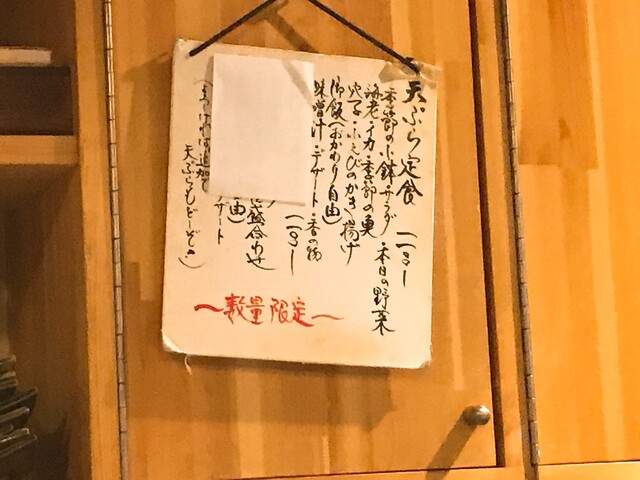 天ぷら定食 二二〇〇ー
季節の小鉢・サラダ・本日の野菜
海老・イカ・季節の魚
穴子・小えびのかき揚げ
御飯(おかわり自由)
味噌汁・デザート・香の物
盛合わせ
由)
ザート
天ぷらもどーぞ。)
〜数量限定〜